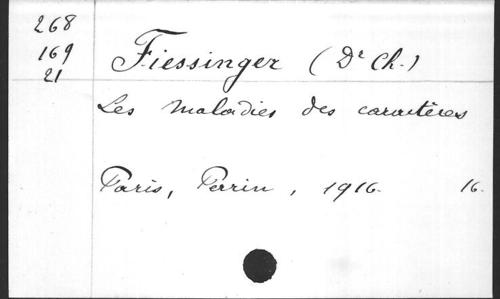 268
169
21
Fiessinger (Dr Ch.)
Les maladies des caractères
Paris, Perrin, 1916. 16.